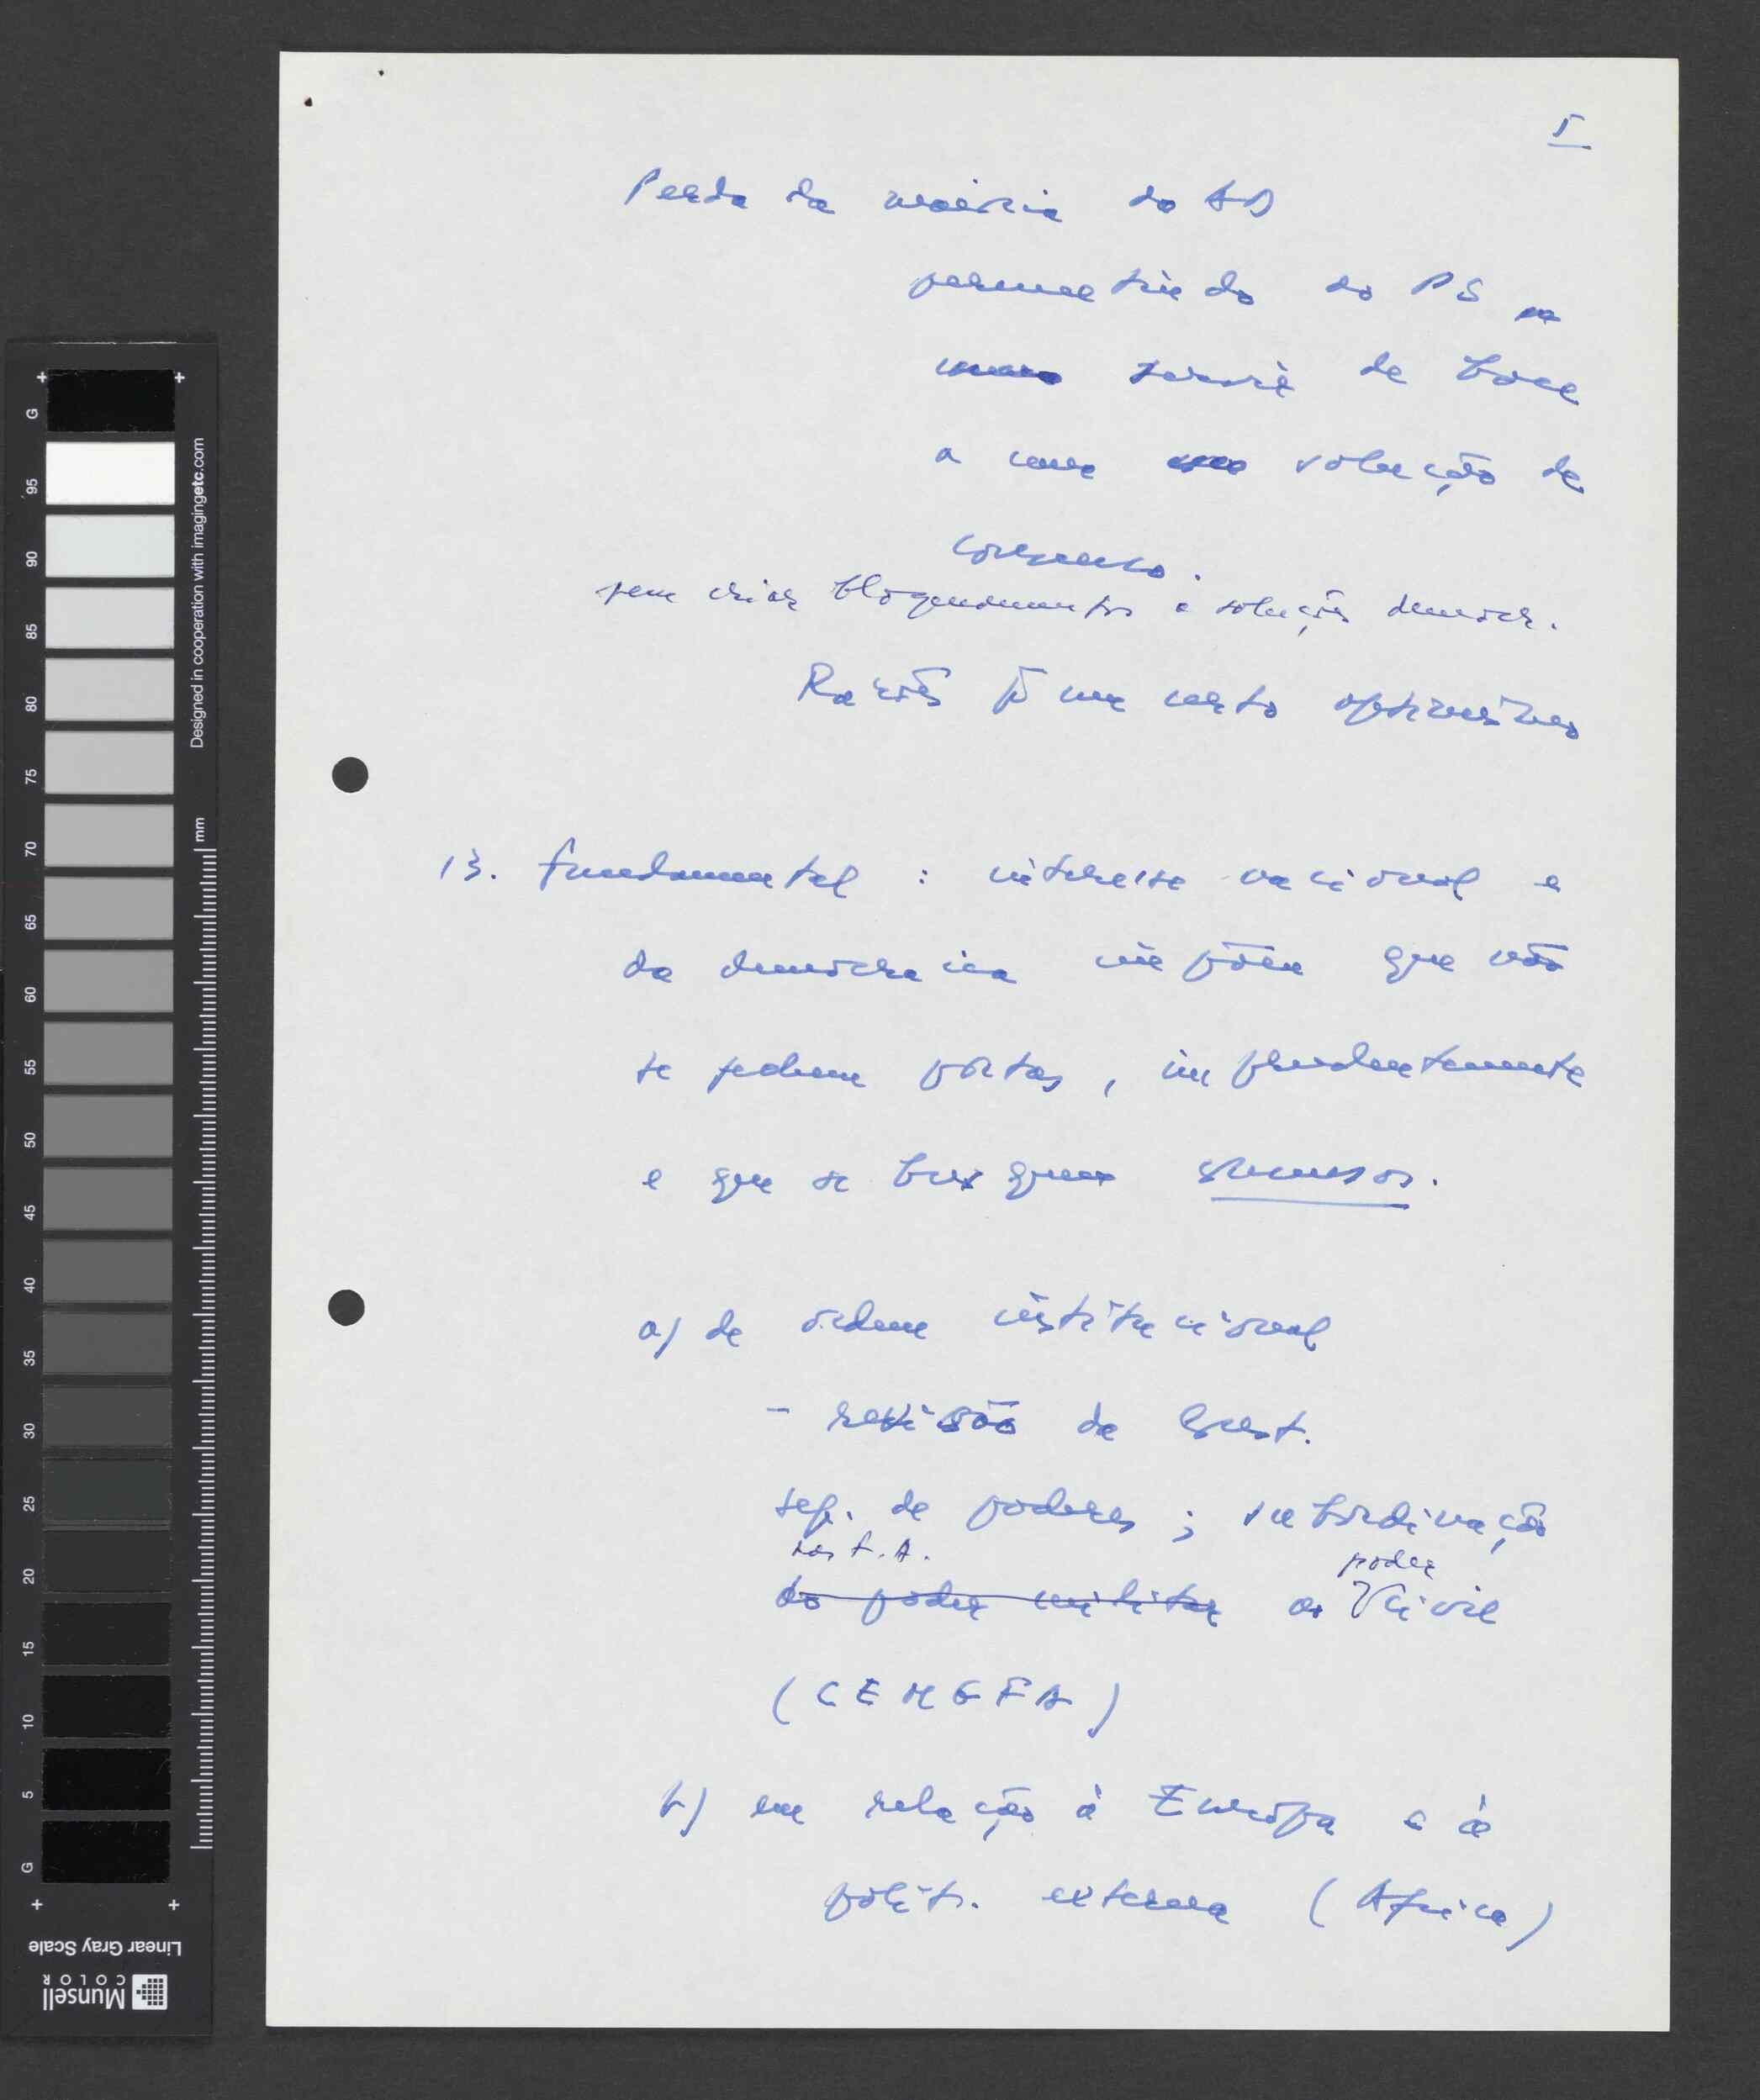 5
Perda da maioria da AD
permitindo ao PS
servir de base
a uma solução de
consenso.
sem criar bloqueamentos à solução democr.
Razões p̃ um certo optimismo
13. fundamental : interesse nacional e
da democracia impõem que não
se fechem portas, imprudentemente
e que se busquem consensos.
a) de ordem institucional
- revisão da Const.
sep. de poderes ; subordinação
das F.A. poder
do poder militar ao civil
(CEMGFA)
b) em relação à Europa e à
polít. externa (Africa)
G 95 90 85 80 75 70 65 60 55 50 45 40 35 30 25 20 15 10 5 G
Designed in cooperation with imagingetc.com
mm
Linear Gray Scale
Munsell
COLOR